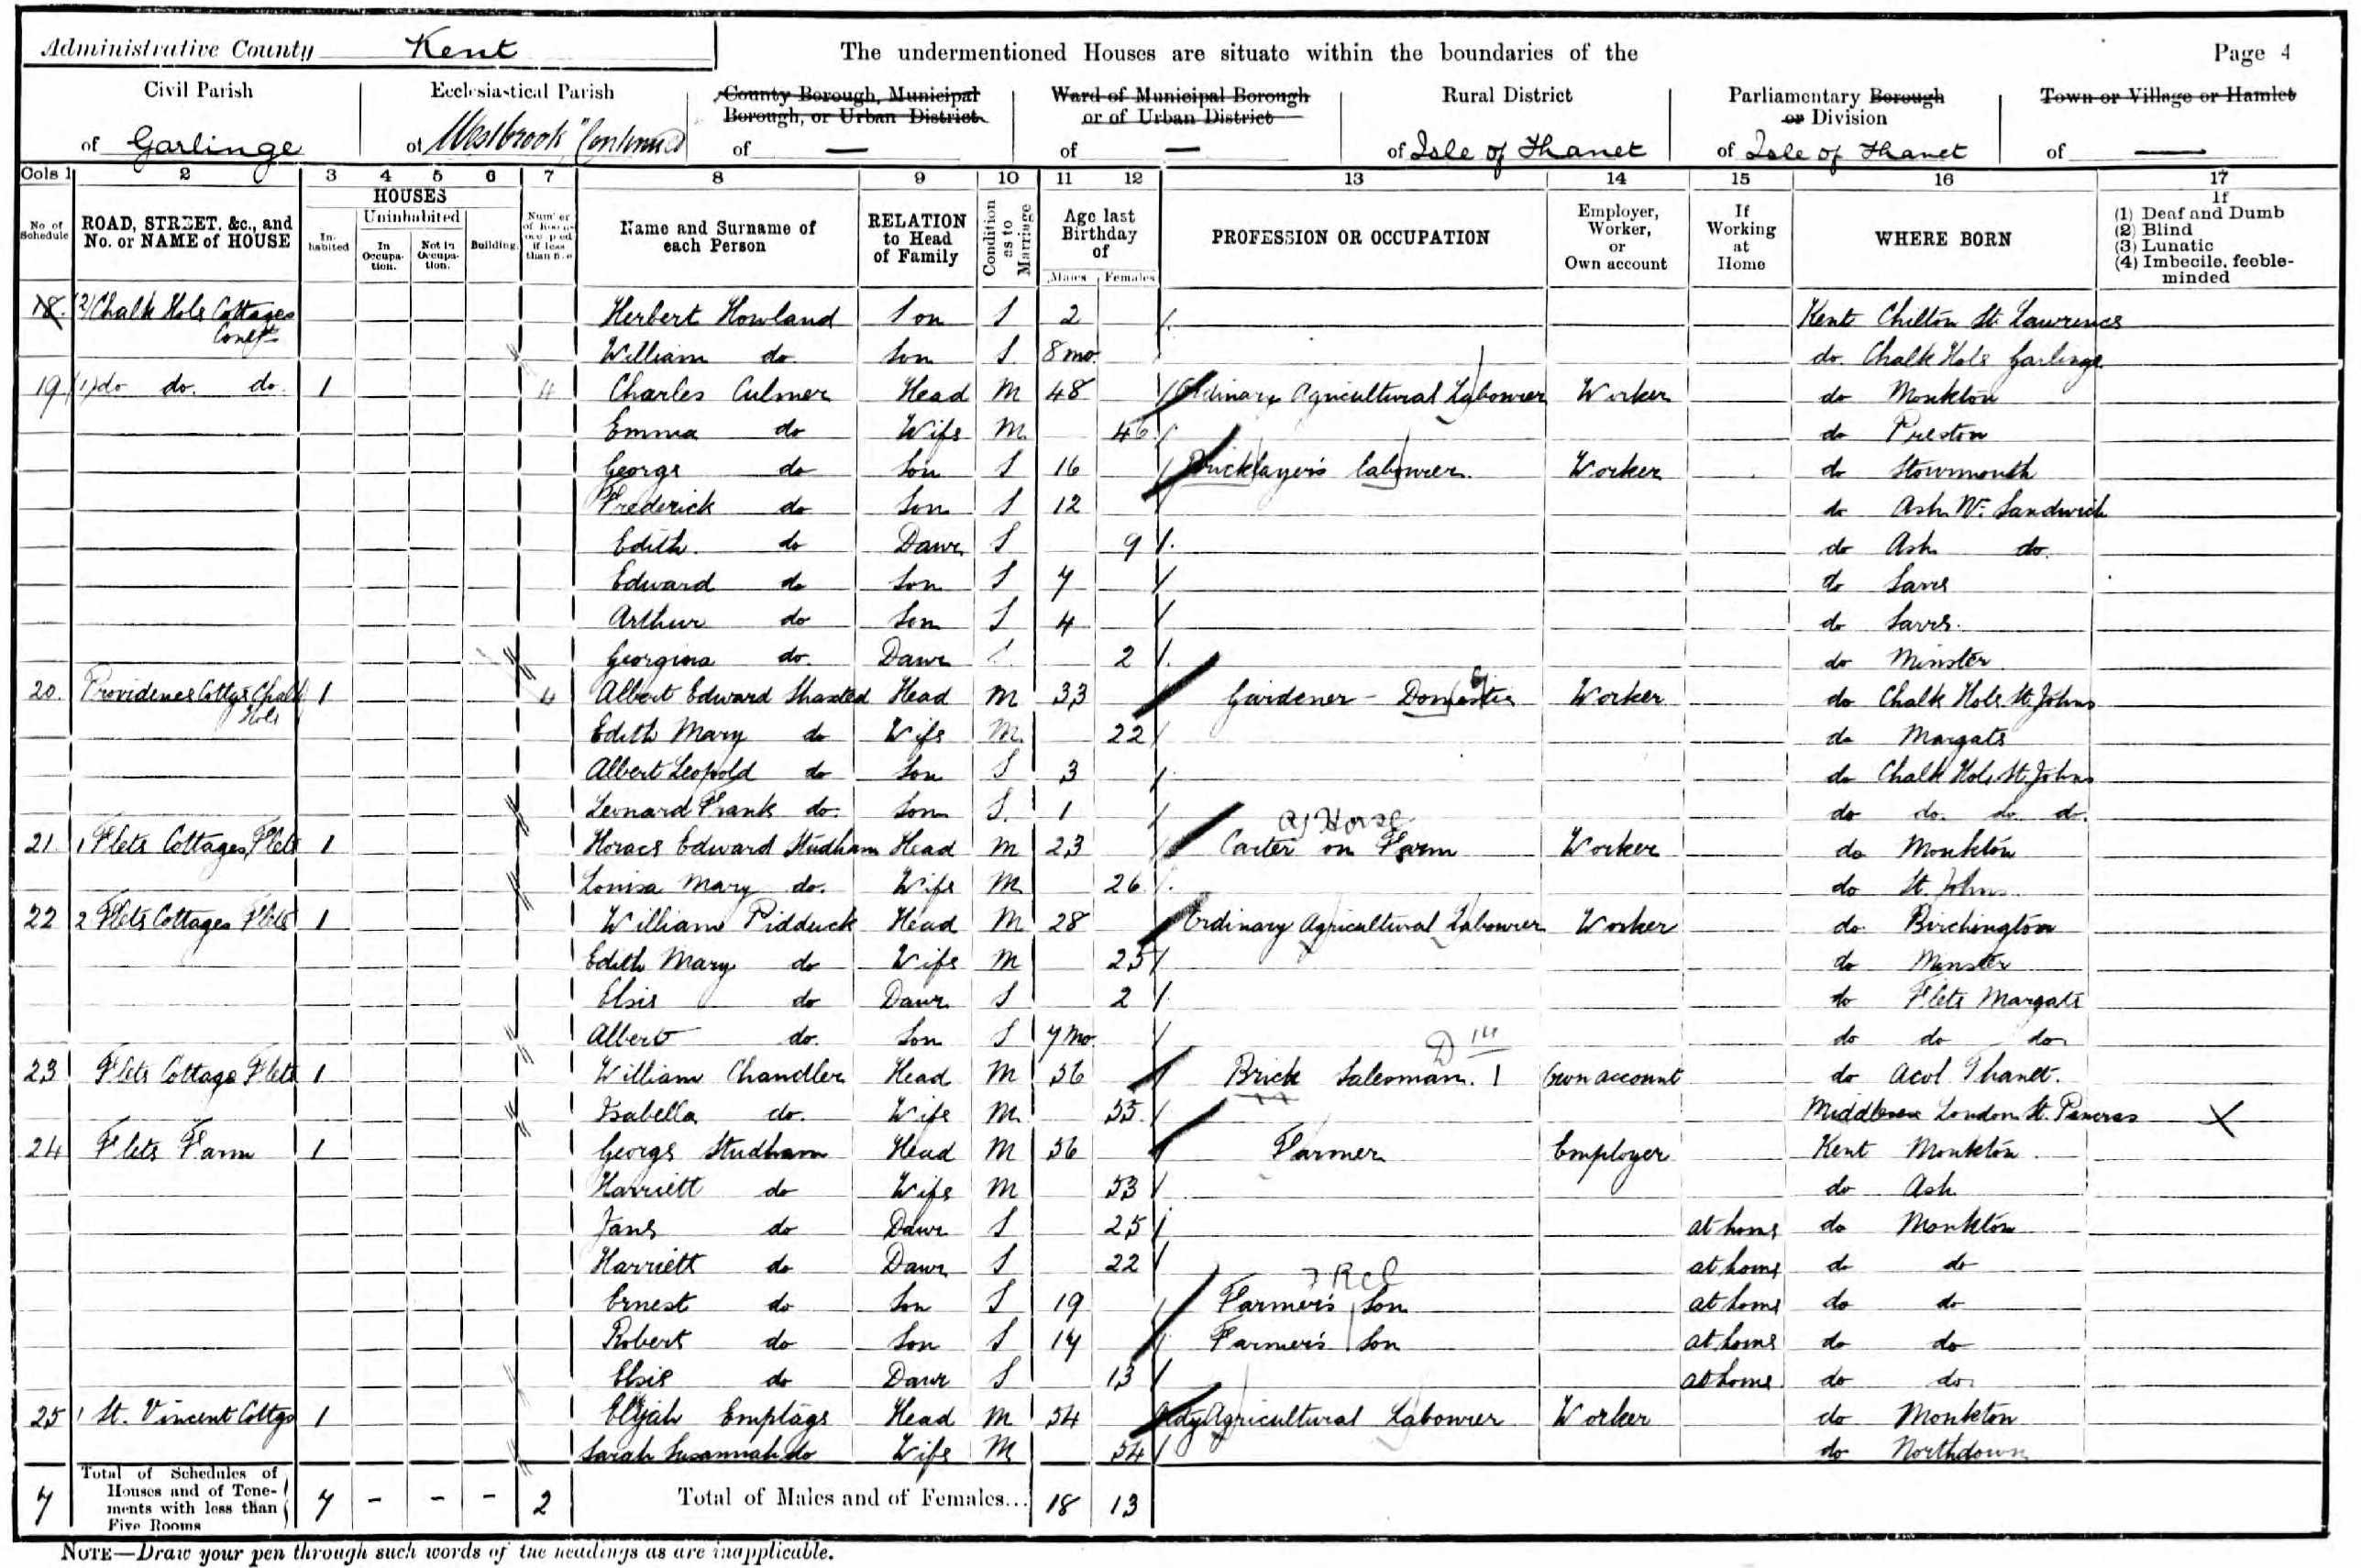 Administrative County Kent The undermentioned Houses are situate within the boundaries of the Page 4
Civil Parish Ecclesiastical Parish County Borough, Municipal Ward of Municipal Borough Rural District Parliamentary Borough Town or Village or Hamlet
Borough, or Urban District or of Urban District or Division
of Garlinge of Westbrook "Continued of — of — of Isle of Thanet of Isle of Thanet of —
Cols 1 2 3 4 5 6 7 8 9 10 11 12 13 14 15 16 17
No of Schedule ROAD, STREET, &c., and No. or NAME of HOUSE HOUSES Inhabited Uninhabited In Occupation. Not in Occupation. Building. Name and Surname of each Person RELATION to Head of Family Condition as to Marriage Age last Birthday of Males Females PROFESSION OR OCCUPATION Employer, Worker, or Own account If Working at Home WHERE BORN If (1) Deaf and Dumb (2) Blind (3) Lunatic (4) Imbecile, feeble-minded
18. (2) Chalk Hole Cottages Contd Herbert Howland Son S 2 Kent Chilton St. Lawrence
William do Son S 8 mo. do. Chalk Hole Garlinge
19 (1) do do. do. 1 4 Charles Culmer Head M 48 Ordinary Agricultural Labourer Worker do Monkton
Emma do Wife M 46 do Preston
George do Son S 16 Bricklayer's labourer Worker do Stourmouth
Frederick do Son S 12 do Ash Nr. Sandwich
Edith do Daur S 9 do Ash do.
Edward do Son S 7 do Sarre
Arthur do Son S 4 do Sarre.
Georgina do. Daur S 2 do Minster
20. Providence Cottgs Chalk Hole 1 4 Albert Edward Shasted Head M 33 Gardener - Domestic Worker do Chalk Hole St. Johns
Edith Mary do Wife M 22 do Margate
Albert Leopold do Son S 3 do Chalk Hole St. Johns
Leonard Frank do. Son S. 1 do do. do do.
21 1 Flete Cottages, Flete 1 Horace Edward Studham Head M 23 Carter on Farm Horse Worker do Monkton
Louisa Mary do. Wife M 26 do St. Johns
22 2 Flete Cottages Flete 1 William Pidduck Head M 28 Ordinary Agricultural Labourer Worker do. Birchington
Edith Mary do Wife M 25 do Minster
Elsie do Daur S 2 do Flete Margate
Albert do. Son S 7 mo. do do do
23 Flete Cottage Flete 1 William Chandler Head M 56 Brick Salesman. Own account do Acol Thanet.
Isabella do. Wife M 55 Middlesex London St. Pancras X
24 Flete Farm 1 George Studham Head M 56 Farmer Employer Kent Monkton
Harriett do Wife M 53 do Ash
Jane do Daur S 25 at home do Monkton
Harriett do Daur S 22 at home do do
Ernest do Son S 19 Farmer's Son at home do do
Robert do Son S 17 Farmer's Son at home do do
Elsie do Daur S 13 at home do do
25 1 St. Vincent Cottgs 1 Elijah Emptage Head M 54 Ordy Agricultural Labourer Worker do Monkton
Sarah Susannah do Wife M 54 do Northdown
7 Total of Schedules of Houses and of Tenements with less than Five Rooms 7 - - - 2 Total of Males and of Females... 18 13
NOTE—Draw your pen through such words of the headings as are inapplicable.